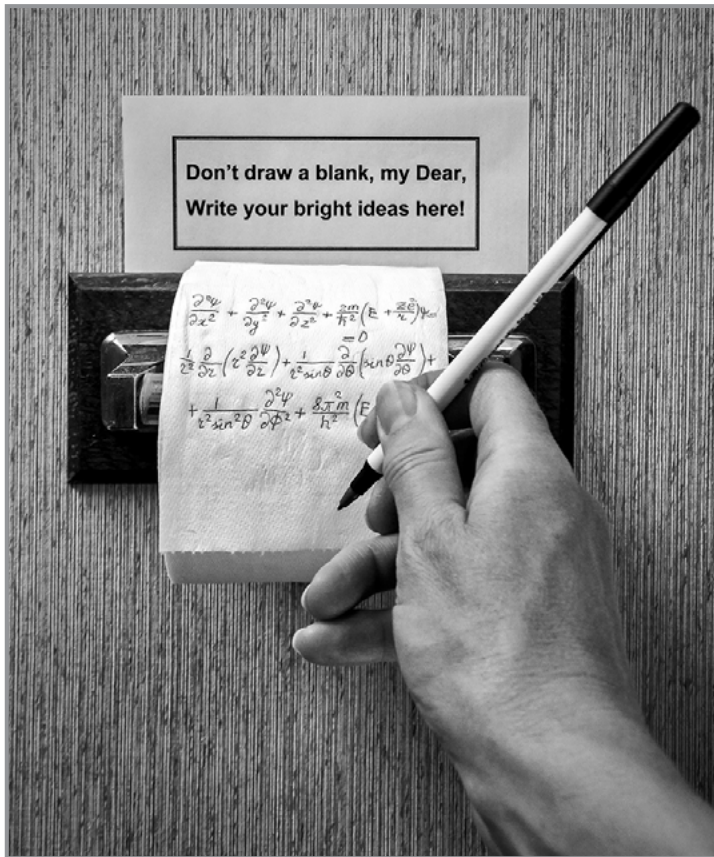 Don't draw a blank, my Dear,
Write your bright ideas here!
∂²Ψ/∂x² + ∂²Ψ/∂y² + ∂²Ψ/∂z² + 2m/ħ² (E + Ze²/r)Ψ
= 0
1/r² ∂/∂r (r² ∂Ψ/∂r) + 1/r² sinθ ∂/∂θ (sinθ ∂Ψ/∂θ) +
+ 1/r² sin²θ ∂²Ψ/∂Φ² + 8π²m/h² (E